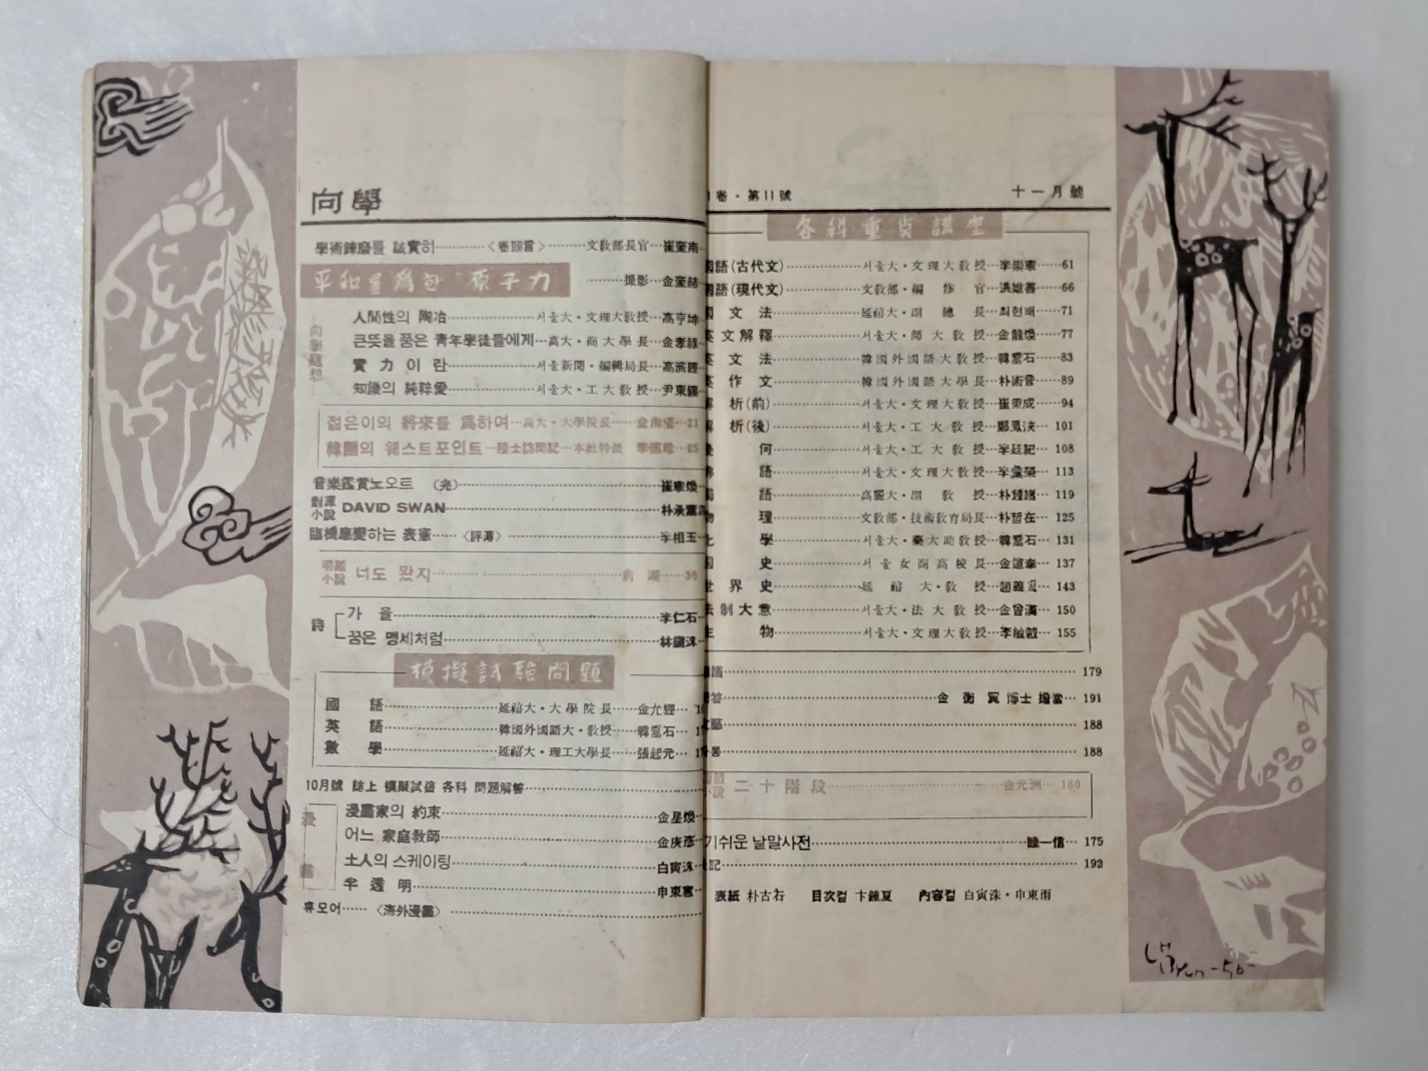 向學
學術鍊磨를 誠實히 〈卷頭言〉 文敎部長官 崔奎南
平和를 爲한 原子力 撮影 金奎赫
向學隨想
人間性의 陶冶 서울大・文理大敎授 高亨坤
큰뜻을 품은 靑年學徒들에게 高大・商大學長 金孝祿
實力이란 서울新聞・編輯局長 高濟經
知識의 純粹愛 서울大・工大敎授 尹東錫
젊은이의 將來를 爲하여 高大・大學院長 21
韓國의 웨스트포인트 陸士訪問記 本社特派 25
音樂鑑賞노오트 〈完〉 崔憲煥
對譯小說 DAVID SWAN 朴承薰
臨機應變하는 表憲 〈評傳〉 李相玉
明朗小說 너도 왔지
詩
가을 李仁石
꿈은 맹세처럼 林鎭洙
模擬試驗問題
國語 延禧大・大學院長 金允經
英語 韓國外國語大・敎授 韓喬石
數學 延禧大・理工大學長 張起元
10月號 誌上 模擬試驗 各科 問題解答
漫畵
漫畵家의 約束 金星煥
어느 家庭敎師 金庚彦
土人의 스케이팅 白寅洙
半透明 申東憲
휴모어 〈海外漫畵〉
卷・第11號 十一月號
各科重点講座
國語(古代文) 서울大・文理大敎授 李崇寧 61
國語(現代文) 文敎部・編修官 洪雄善 66
國文法 延禧大・副總長 최현배 71
英文解釋 서울大・師大敎授 金龍煥 77
英文法 韓國外國語大敎授 韓喬石 83
英作文 韓國外國語大學長 朴術音 89
解析(前) 서울大・文理大敎授 崔秉成 94
解析(後) 서울大・工大敎授 鄭鳳浹 101
幾何 서울大・工大敎授 李廷紀 108
佛語 서울大・文理大敎授 李彙榮 113
獨語 高麗大・副敎授 朴鍾緖 119
物理 文敎部・技術敎育局長 朴哲在 125
化學 서울大・藥大助敎授 韓喬石 131
國史 서울女商高校長 金道泰 137
世界史 延禧大・敎授 趙義卨 143
法制大意 서울大・法大敎授 金曾漢 150
生物 서울大・文理大敎授 李敏載 155
179
答 金衡翼 博士 擔當 191
188
188
小說 二十階段 金光洲 180
기쉬운 낱말사전 睦一信 175
記 192
表紙 朴古石 目次컽 卞鍾夏 內容컽 白寅洙・申東雨